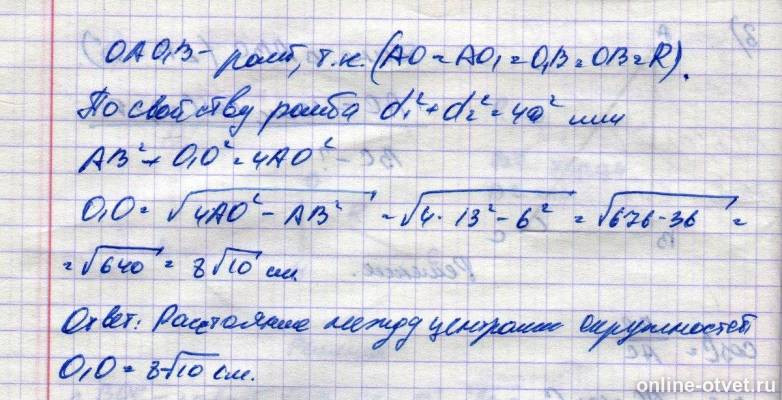 OAO₁B - ромб, т.к. (AO = AO₁ = O₁B = OB = R).
По свойству ромба d₁² + d₂² = 4a² или
AB² + O₁O² = 4AO²
O₁O = √(4AO² - AB²) = √(4 · 13² - 6²) = √(676 - 36) =
= √640 = 8√10 см
Ответ: Расстояние между центрами окружностей
O₁O = 8√10 см.
online-otvet.ru